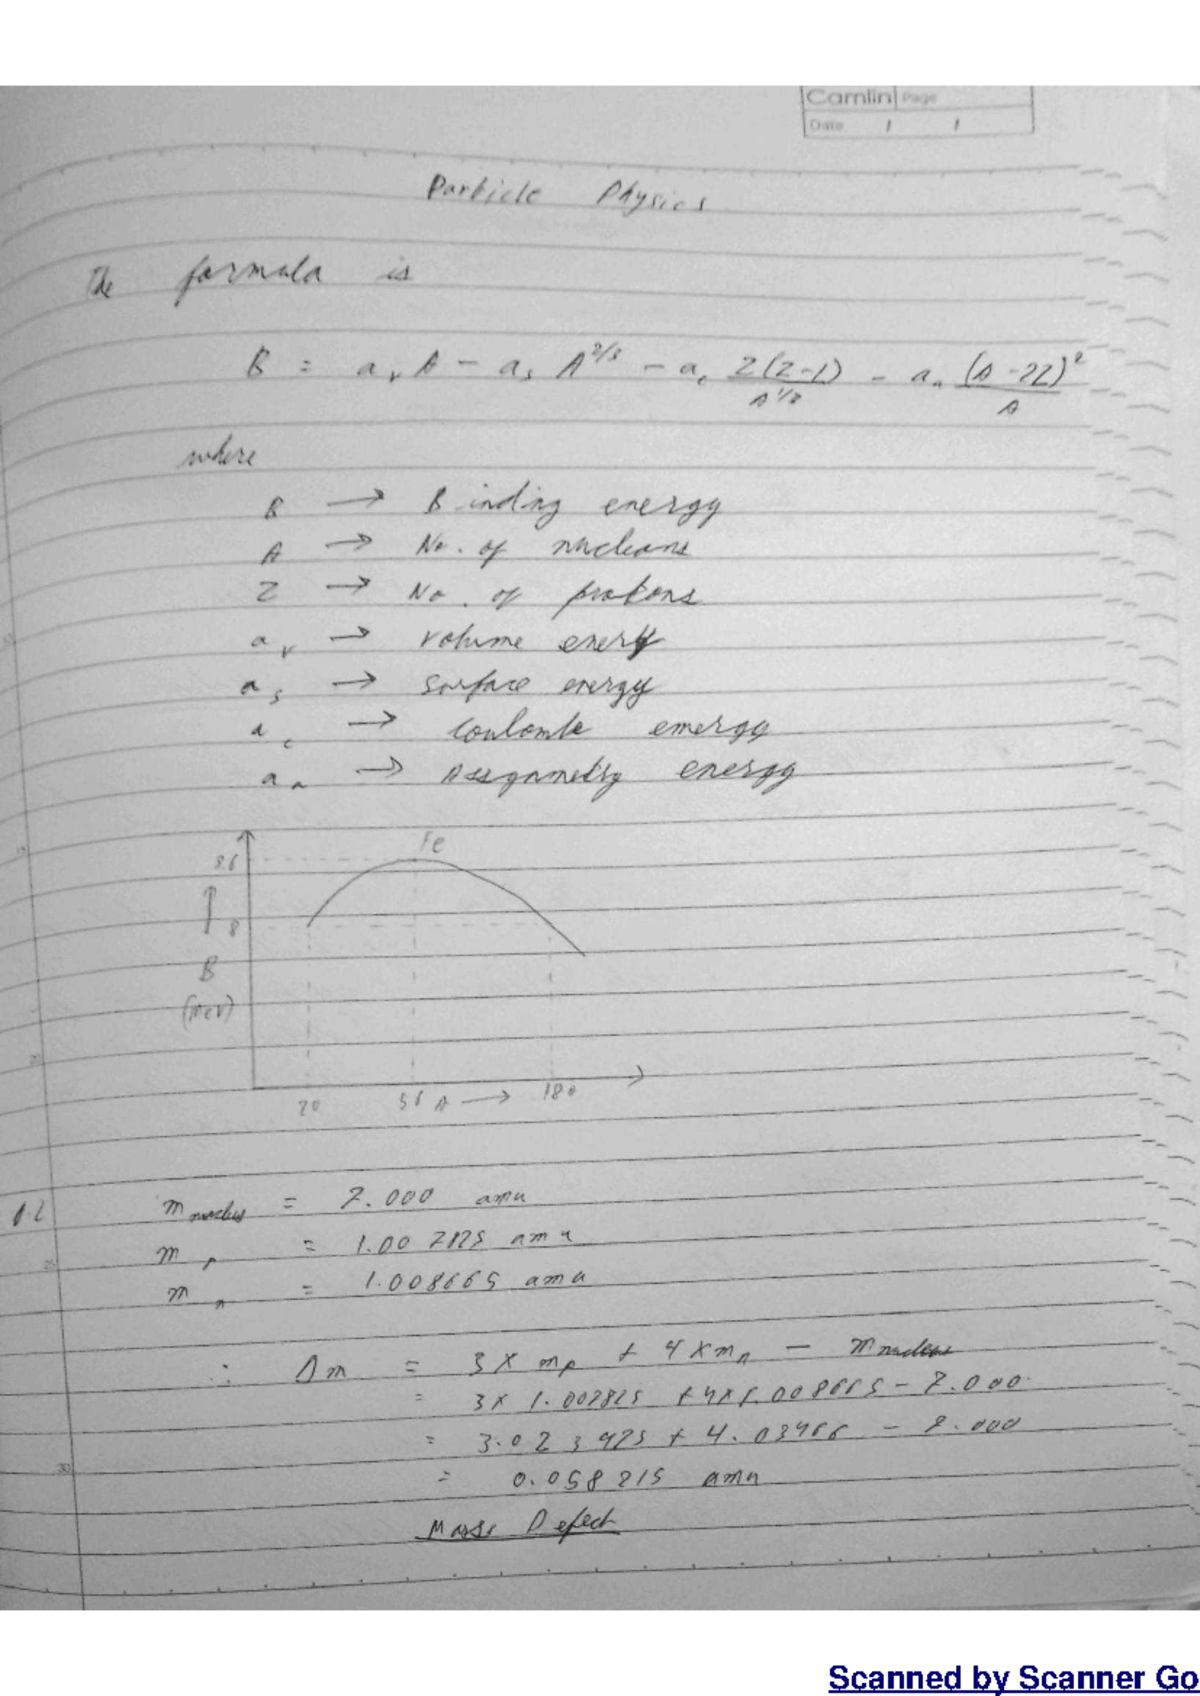 Camlin Page
Date / /
Particle Physics
The formula is
B = a_v A - a_s A^{2/3} - a_c Z(Z-1)/A^{1/3} - a_a (A-2Z)^2/A
where
B → Binding energy
A → No. of nucleons
Z → No. of protons
a_v → volume energy
a_s → surface energy
a_c → coulomb energy
a_a → Assymetry energy
Fe
8.6
↑ 8
B
(MeV)
20 56 A → 180
m nucleus = 7.000 amu
m_p = 1.007825 amu
m_n = 1.008665 amu
∴ Δm = 3 × m_p + 4 × m_n - m nucleus
= 3 × 1.007825 + 4 × 1.008665 - 7.000
= 3.023475 + 4.03466 - 7.000
= 0.058215 amu
Mass Defect
Scanned by Scanner Go